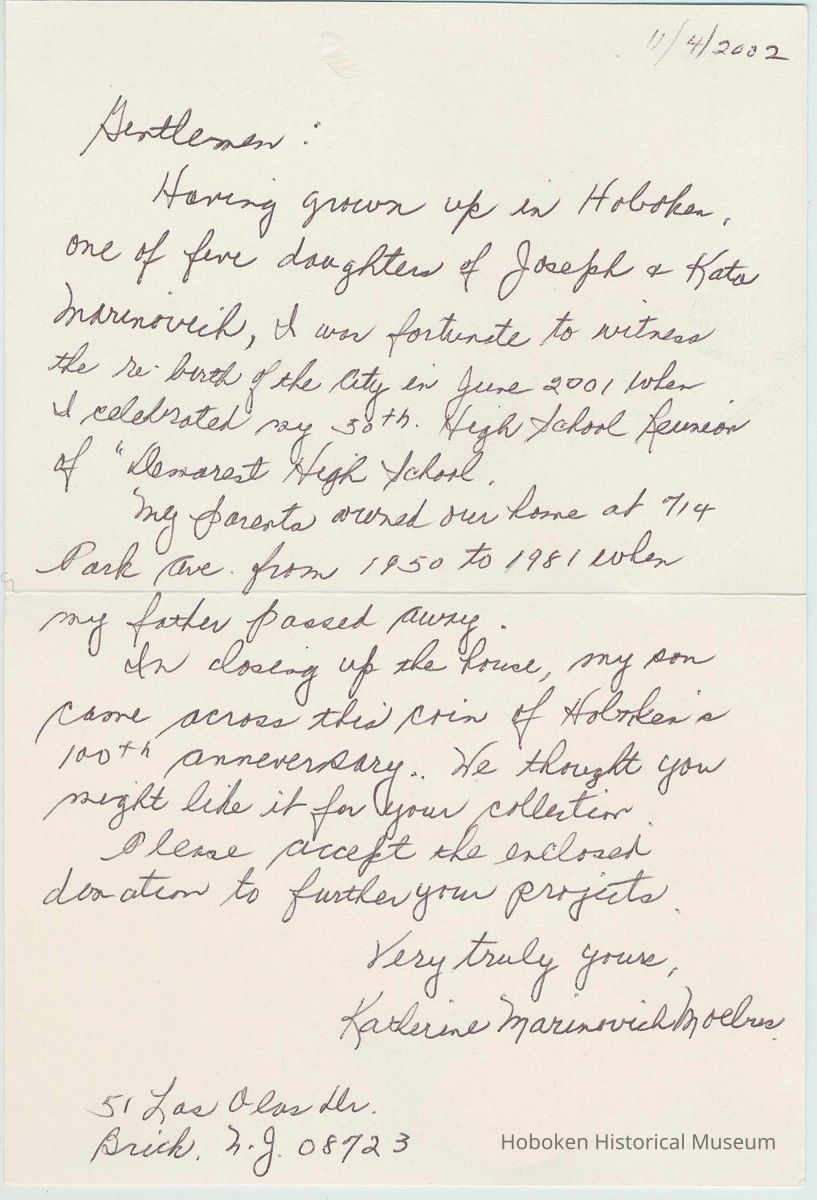 11/4/2002
Gentlemen:
Having grown up in Hoboken,
one of five daughters of Joseph & Kata
Marinovich, I was fortunate to witness
the re-birth of the City in June 2001 when
I celebrated my 50th. High School Reunion
of "Demarest High School.
My parents owned our home at 714
Park Ave. from 1950 to 1981 when
my father passed away.
In closing up the house, my son
came across this coin of Hoboken's
100th anneversary.. We thought you
might like it for your collection.
Please accept the enclosed
donation to further your projects.
Very truly yours,
Katherine Marinovich
51 Las Olas Dr.
Brick, N.J. 08723
Hoboken Historical Museum